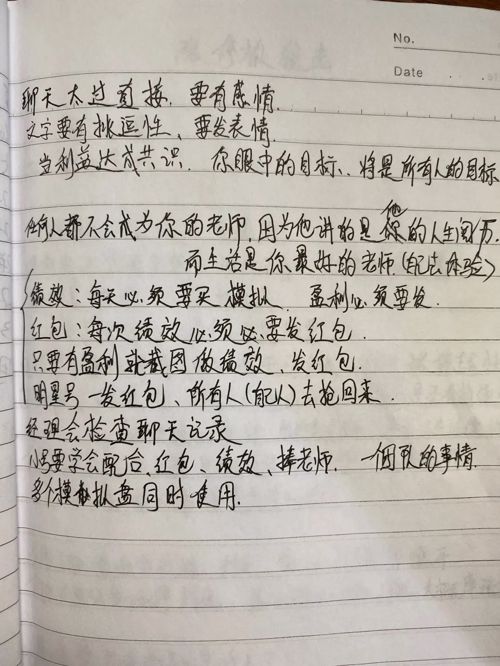 No.
Date
聊天太过直接，要有感情.
文字要有挑逗性、要发表情
当利益达成共识．你眼中的目标、将是所有人的目标
任何人都不会成为你的老师，因为他讲的是他的人生阅历.
而生活是你最好的老师(配去体验)
绩效：每天必须要买 模拟． 盈利必须要发．
红包：每次绩效必须必要发红包．
只要有盈利就截图做绩效、发红包．
明星号一发红包、所有人(配以)去抢回来．
经理会检查聊天记录
小号要学会配合、红包、绩效、捧老师． 一個队的事情.
多个模拟盘同时使用.